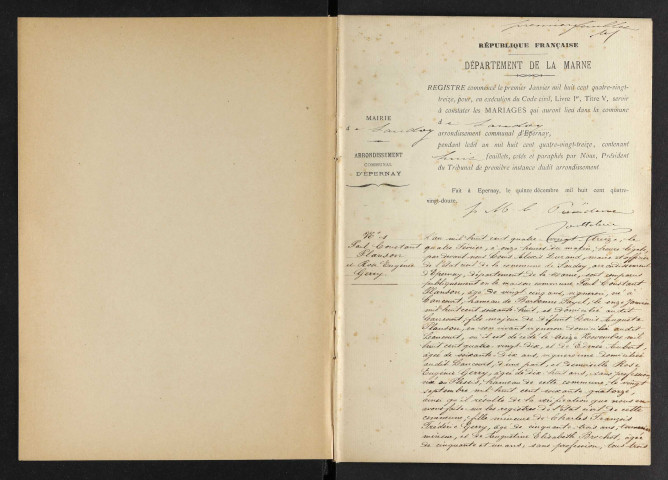 premier feuillet
RÉPUBLIQUE FRANÇAISE
DÉPARTEMENT DE LA MARNE
REGISTRE commencé le premier Janvier mil huit cent quatre-vingt-
treize, pour, en exécution du Code civil, Livre Ier, Titre V, servir
à constater les MARIAGES qui auront lieu dans la commune
de
arrondissement communal d'Epernay,
pendant ledit an mil huit cent quatre-vingt-treize, contenant
feuillets, cotés et paraphés par Nous, Président
du Tribunal de première instance dudit arrondissement.
MAIRIE
de
ARRONDISSEMENT
COMMUNAL
D'ÉPERNAY
Fait à Epernay, le quinze décembre mil huit cent quatre-
vingt-douze.
p. M. le Président
No 1
Paul Constant
Planson
et Rose Eugénie
Gerry
L'an mil huit cent quatre-vingt treize, le
quatre Février, à onze heures du matin,
par devant nous Louis Alexis Durand, maire et officier
de l'état civil de la commune de arrondissement
d'Epernay, département de la Marne, sont comparus
publiquement en la maison commune Paul Constant
Planson, âgé de vingt cinq ans, vigneron, né à
hameau de le onze Janvier
mil huit cent soixante huit, et domicilié audit
fils majeur de défunt Louis Auguste
Planson, en son vivant vigneron domicilié audit
où il est décédé le treize Novembre mil
huit cent quatre-vingt-dix, et de
âgée de soixante dix ans, vigneronne domiciliée
audit d'une part, et demoiselle Rose
Eugénie Gerry, âgée de dix huit ans, sans profession
née au hameau de cette commune, le vingt
septembre mil huit cent soixante quatorze,
ainsi qu'il résulte de la vérification que nous en
avons faite sur les registres de l'état civil de cette
commune, fille mineure de Charles François
Frédéric Gerry, âgé de cinquante trois ans,
et de Augustine Elisabeth Brochet, âgée
de cinquante et un ans, sans profession, tous deux